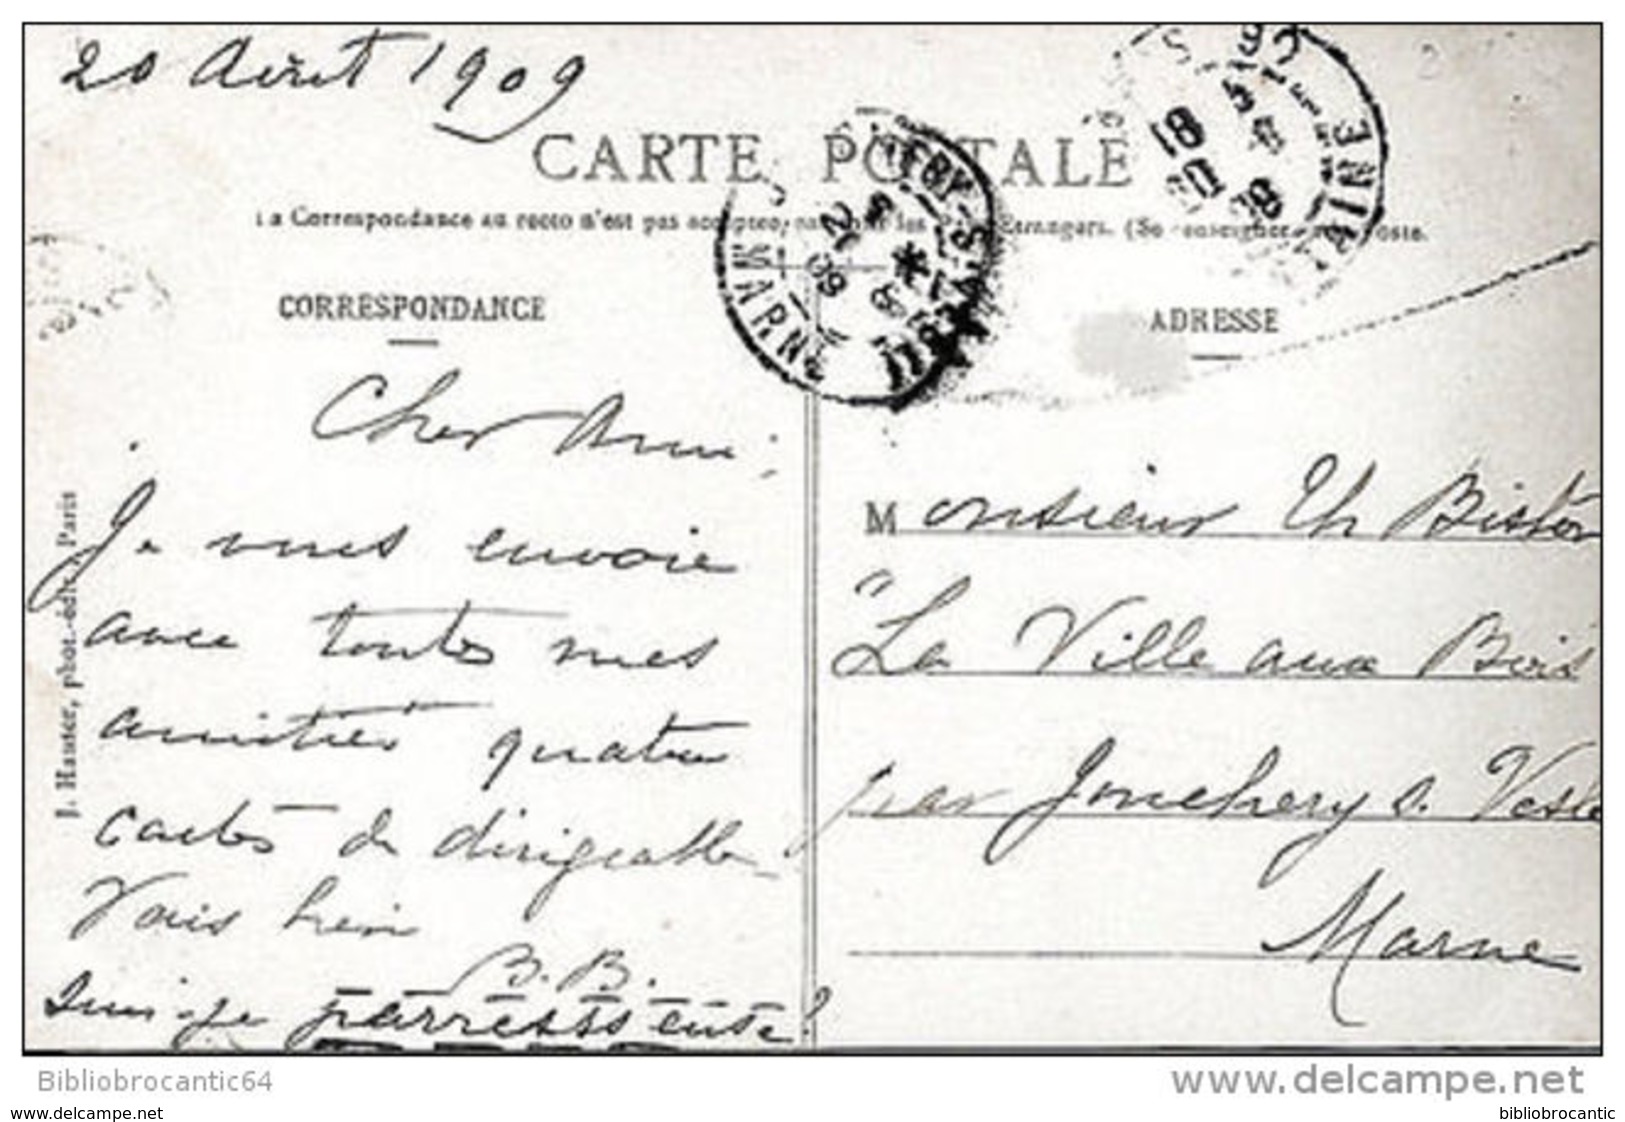 20 Août 1909
CARTE POSTALE
La Correspondance au recto n'est pas acceptée par tous les Pays Etrangers. (Se renseigner à la Poste.
CORRESPONDANCE
Cher Ami,
Je vous envoie
avec toutes mes
amitiés quatre
cartes de dirigeable
B. B.
Suis-je parresseuse?
J. Hauser, phot.-édit., Paris
ADRESSE
Monsieur Th Biston
"La Ville aux Bois
par Jonchery s. Vesle
Marne
MARNE
Bibliobrocantic64
www.delcampe.net
www.delcampe.com
bibliobrocantic